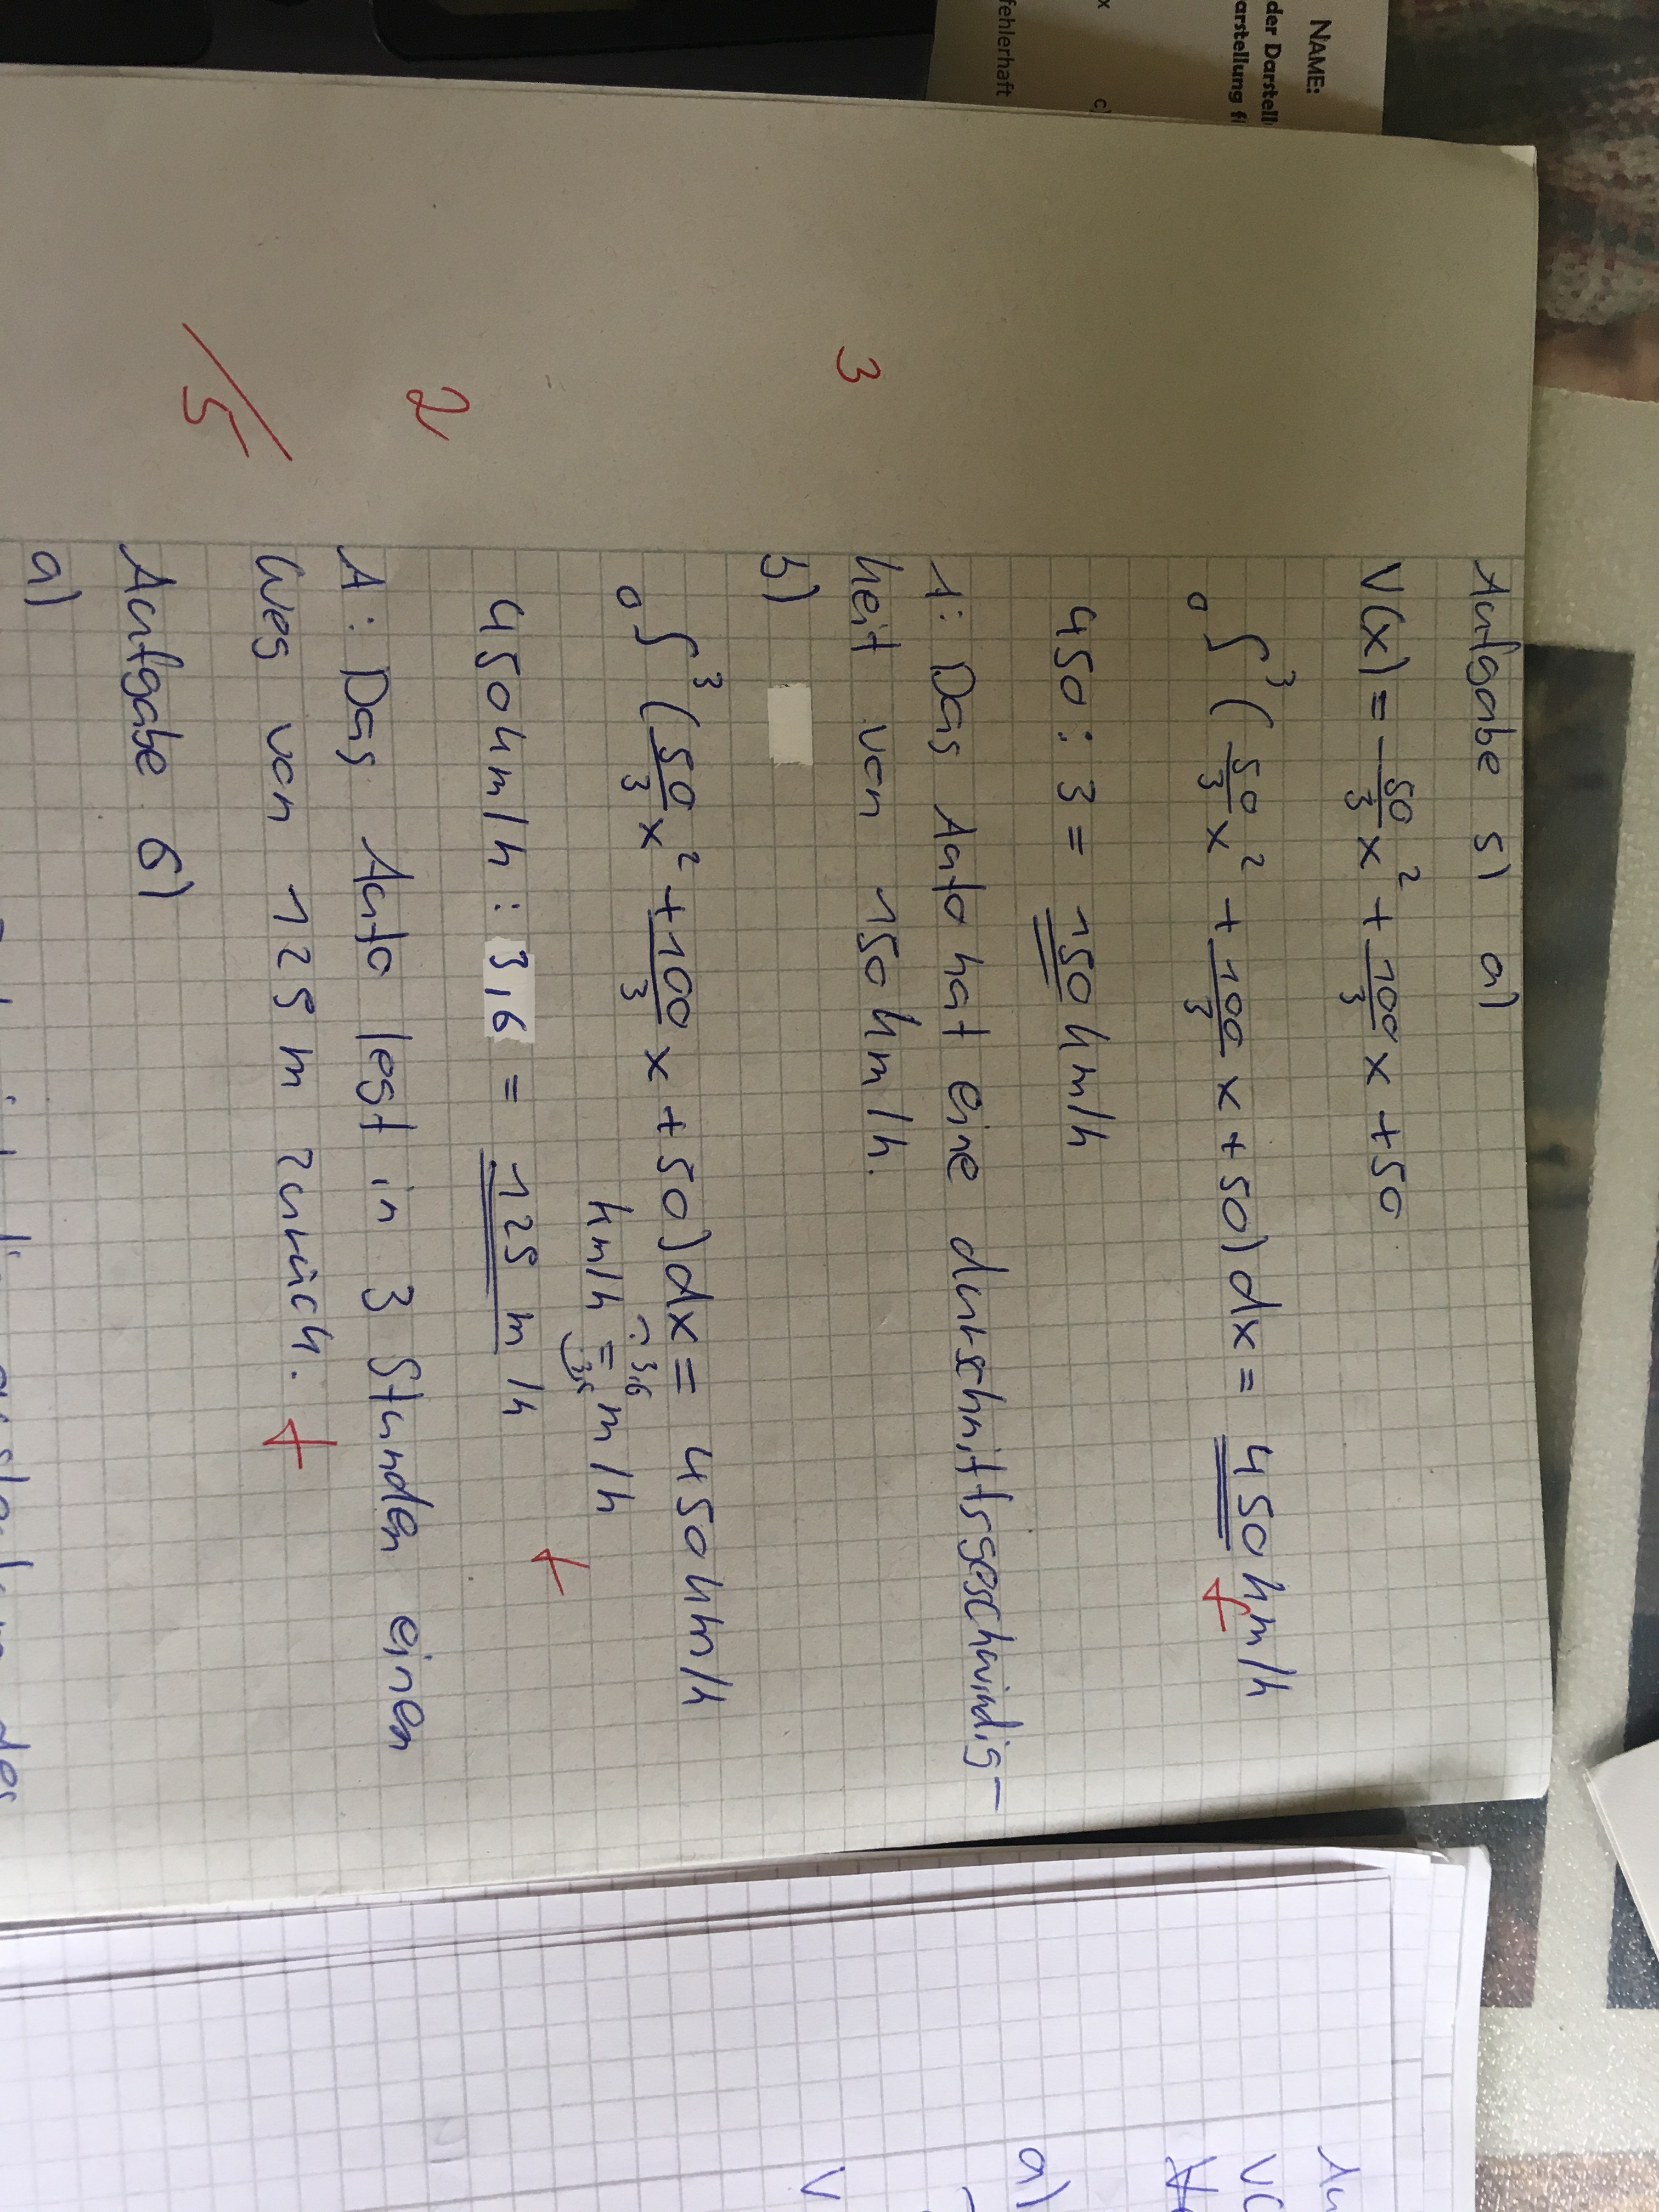 NAME:
der Darstell
arstellung f
x
c)
fehlerhaft
Aufgabe 5) a)
V(x) = 50/3 x² + 100/3 x + 50
₀∫³ (50/3 x² + 100/3 x + 50) dx = 450 km/h
450 : 3 = 150 km/h
A: Das Auto hat eine durschnittsgeschwindig-
heit von 150 km/h.
3
b)
₀∫³ (50/3 x² + 100/3 x + 50) dx = 450 km/h
km/h = m/h
450 km/h : 3,6 = 125 m/h
2
A: Das Auto legt in 3 Stunden einen
Weg von 125 m zurück.
/5
Aufgabe 6)
a)
a)
V